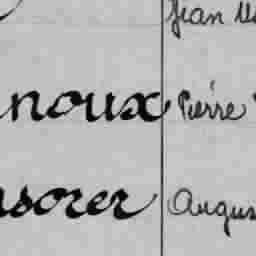 Jean
noux Pierre
sorer Augus